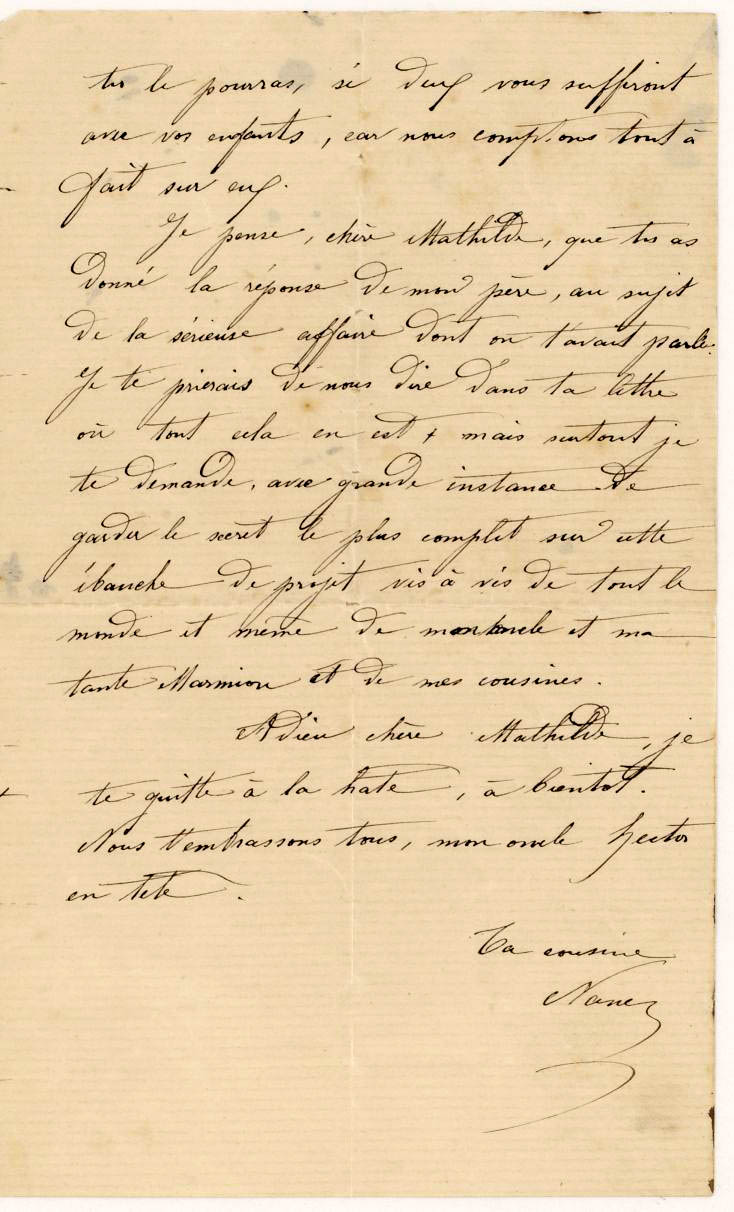 tu le pourras, si deux vous suffiront
avec vos enfants, car nous comptons tout à
fait sur eux.
Je pense, chère Mathilde, que tu as
donné la réponse de mon père, au sujet
de la sérieuse affaire dont on t'avait parlé.
Je te prierais de nous dire dans ta lettre
où tout cela en est & mais surtout je
te demande, avec grande instance de
garder le secret le plus complet sur cette
ébauche de projet vis à vis de tout le
monde et même de mon oncle et ma
tante Marmion et de mes cousines.
Adieu chère Mathilde, je
te quitte à la hate, à bientot.
Nous t'embrassons tous, mon oncle Hector
en tete.
Ta cousine